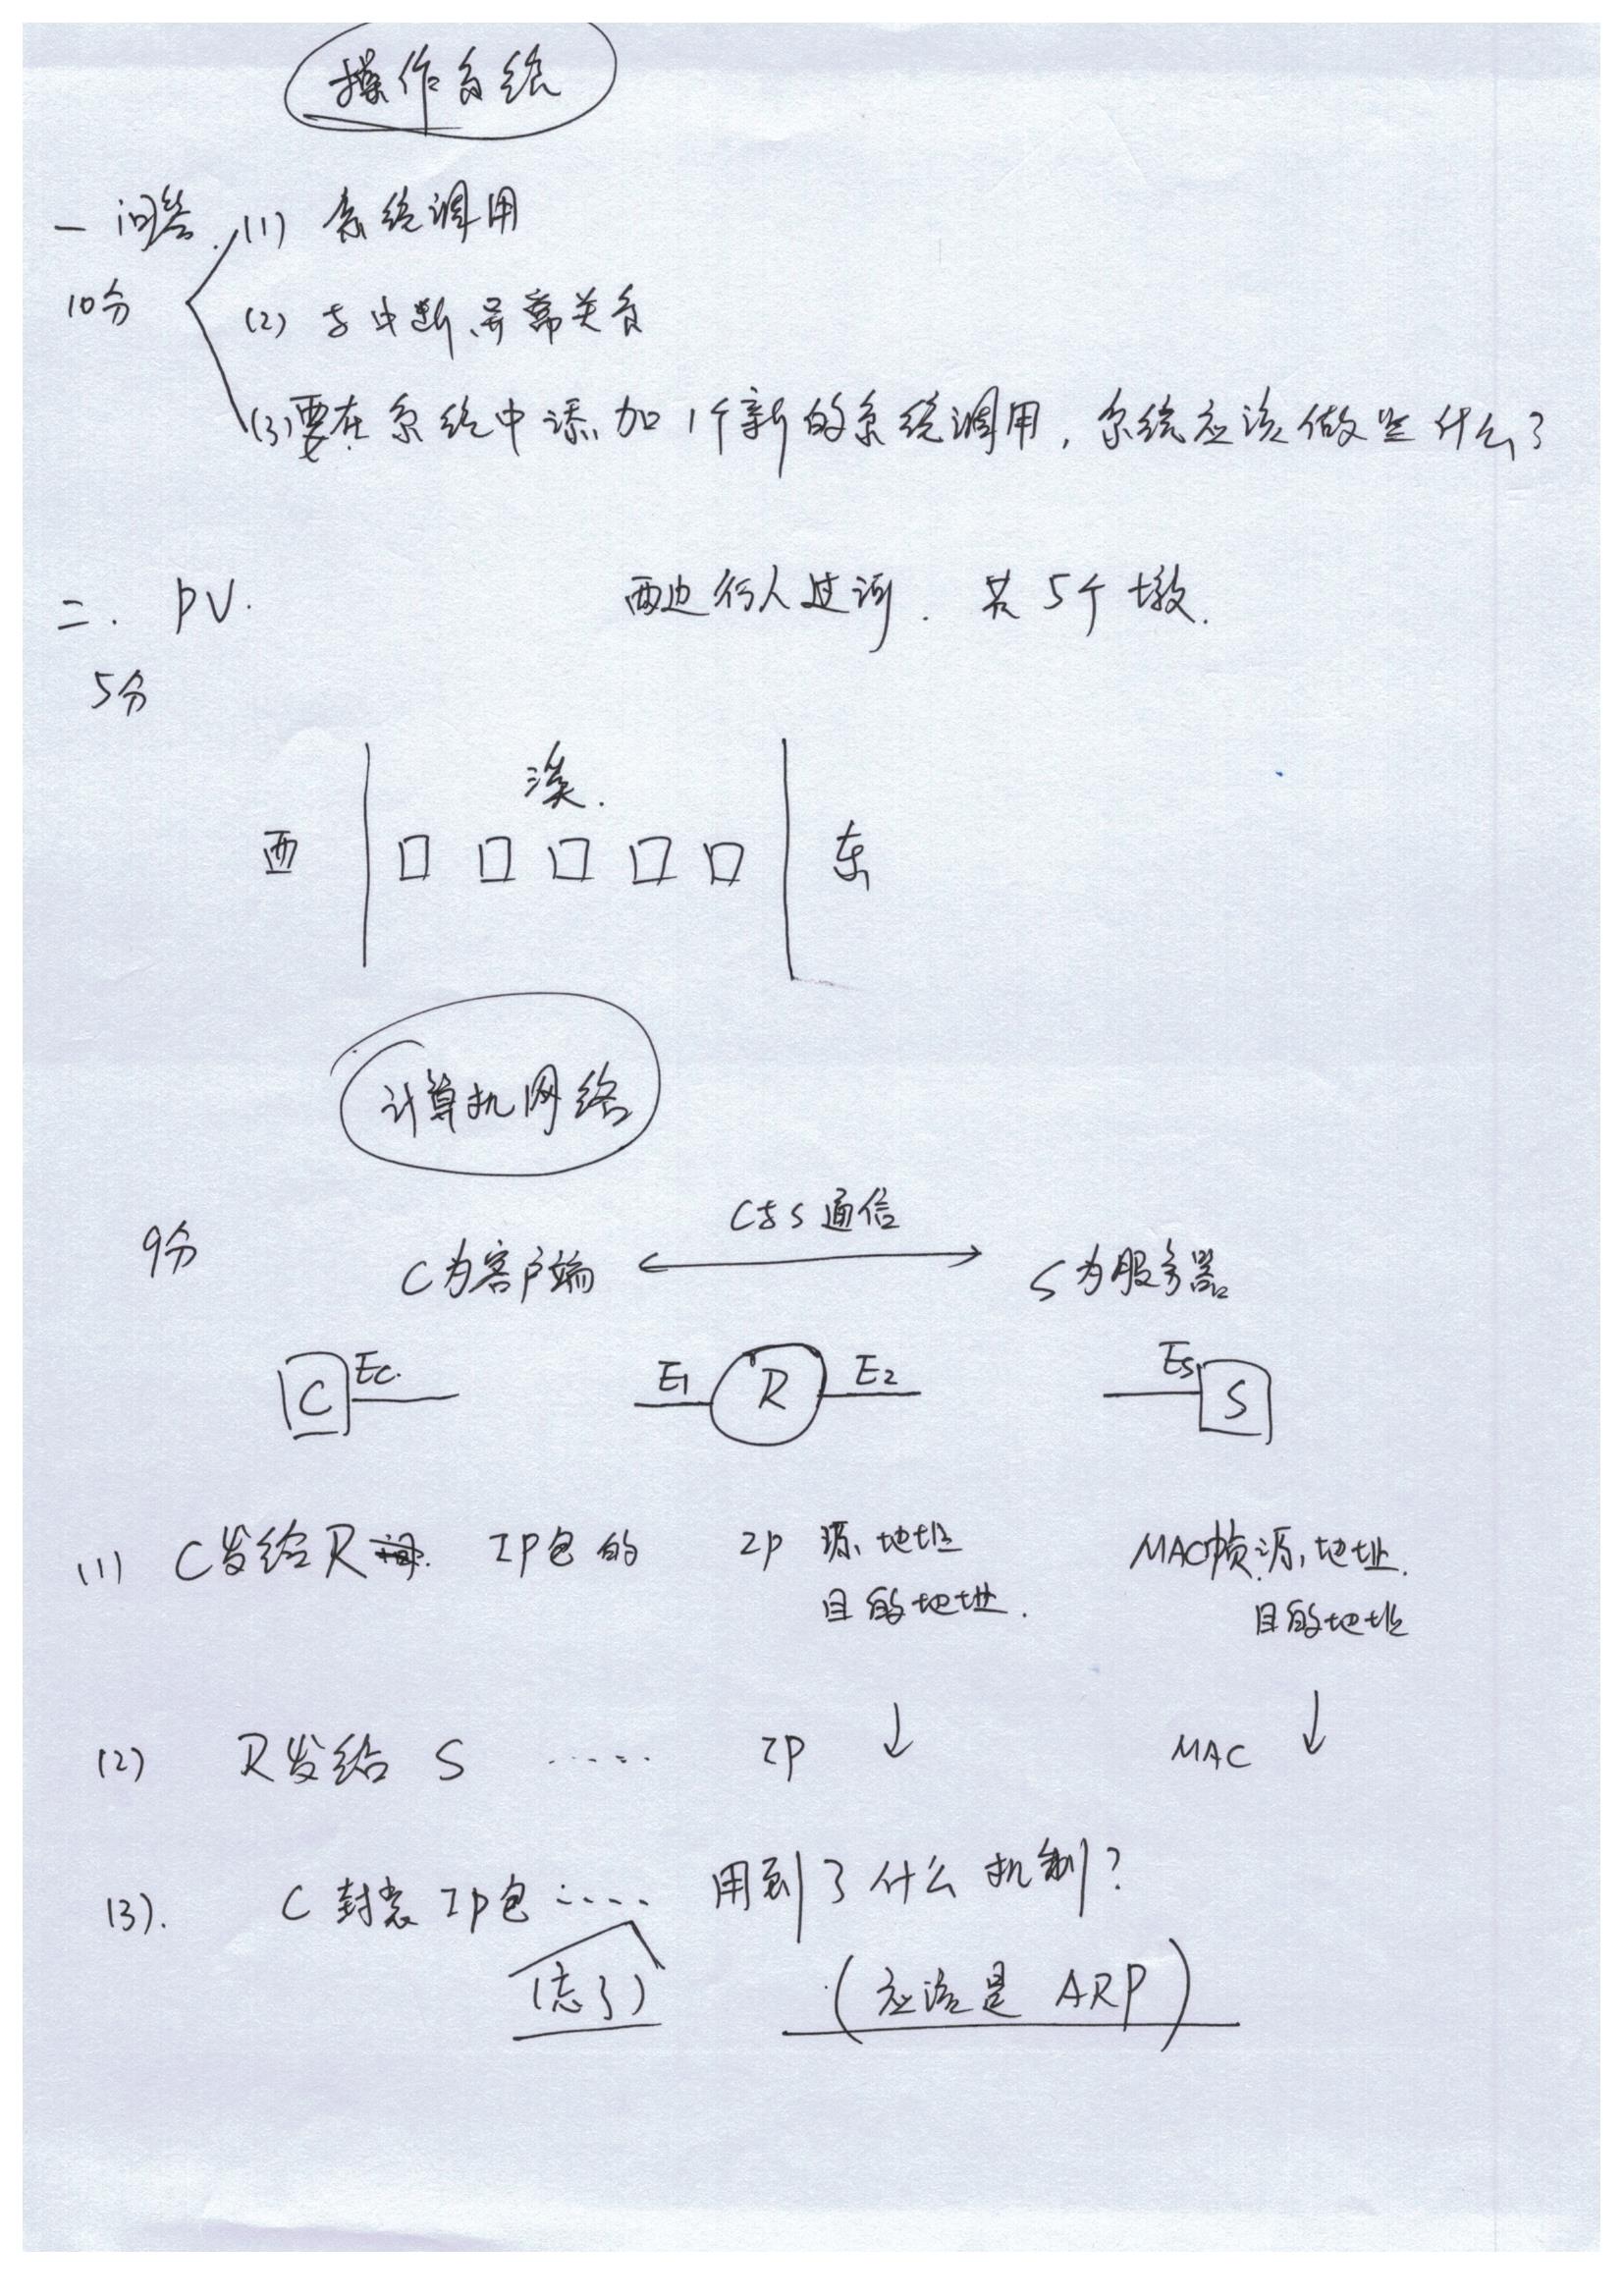 操作系统
一 问答. (1) 系统调用
10分
(2) 与中断、异常关系
(3) 要在系统中添加1个新的系统调用, 系统应该做些什么?
二. PV. 两边行人过河. 共5个墩.
5分
溪.
西 东
计算机网络
C与S通信
9分 C为客户端 S为服务器
C Ec. E1 R E2 Es S
(1) C发给R IP包的 IP 源地址 MAC帧源地址.
目的地址. 目的地址
(2) R发给 S ..... IP ↓ MAC ↓
(3). C 封装 IP包 ..... 用到了什么机制?
(忘了) (应该是 ARP)